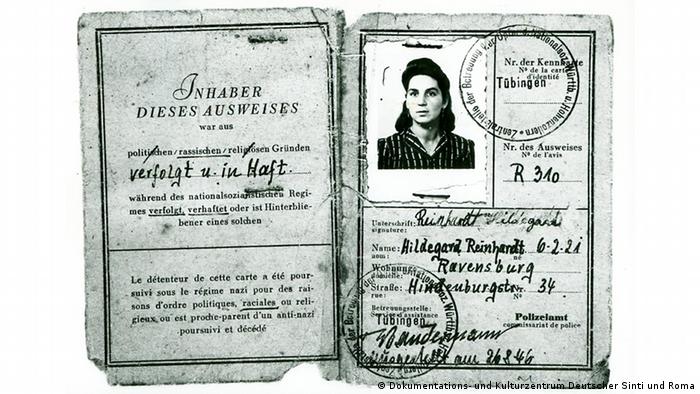 INHABER
DIESES AUSWEISES
war aus
politischen/rassischen/religiösen Gründen
verfolgt u. in Haft.
während des nationalsozialistischen Regi-
mes verfolgt, verhaftet oder ist Hinterblie-
bener eines solchen
Le détenteur de cette carte a été pour-
suivi sous le régime nazi pour des rai-
sons d'ordre politiques, raciales ou reli-
gieux, ou est proche-parent d'un anti-nazi
poursuivi et décédé
Nr. der Kennkarte
Nº de la carte
d'identité
Tübingen
Nr. des Ausweises
Nº de l'avis
R 310
Unterschrift: Reinhardt Hildegard
signature:
Name: Hildegard Reinhardt 6-2-21
nom: né
Wohnung: Ravensburg
Straße: Hindenburgstr. Nº 34
rue:
Betreuungsstelle:
Service d'assistance
Tübingen
Polizeiamt
commissariat de police
am 26.8.46
© Dokumentations- und Kulturzentrum Deutscher Sinti und Roma